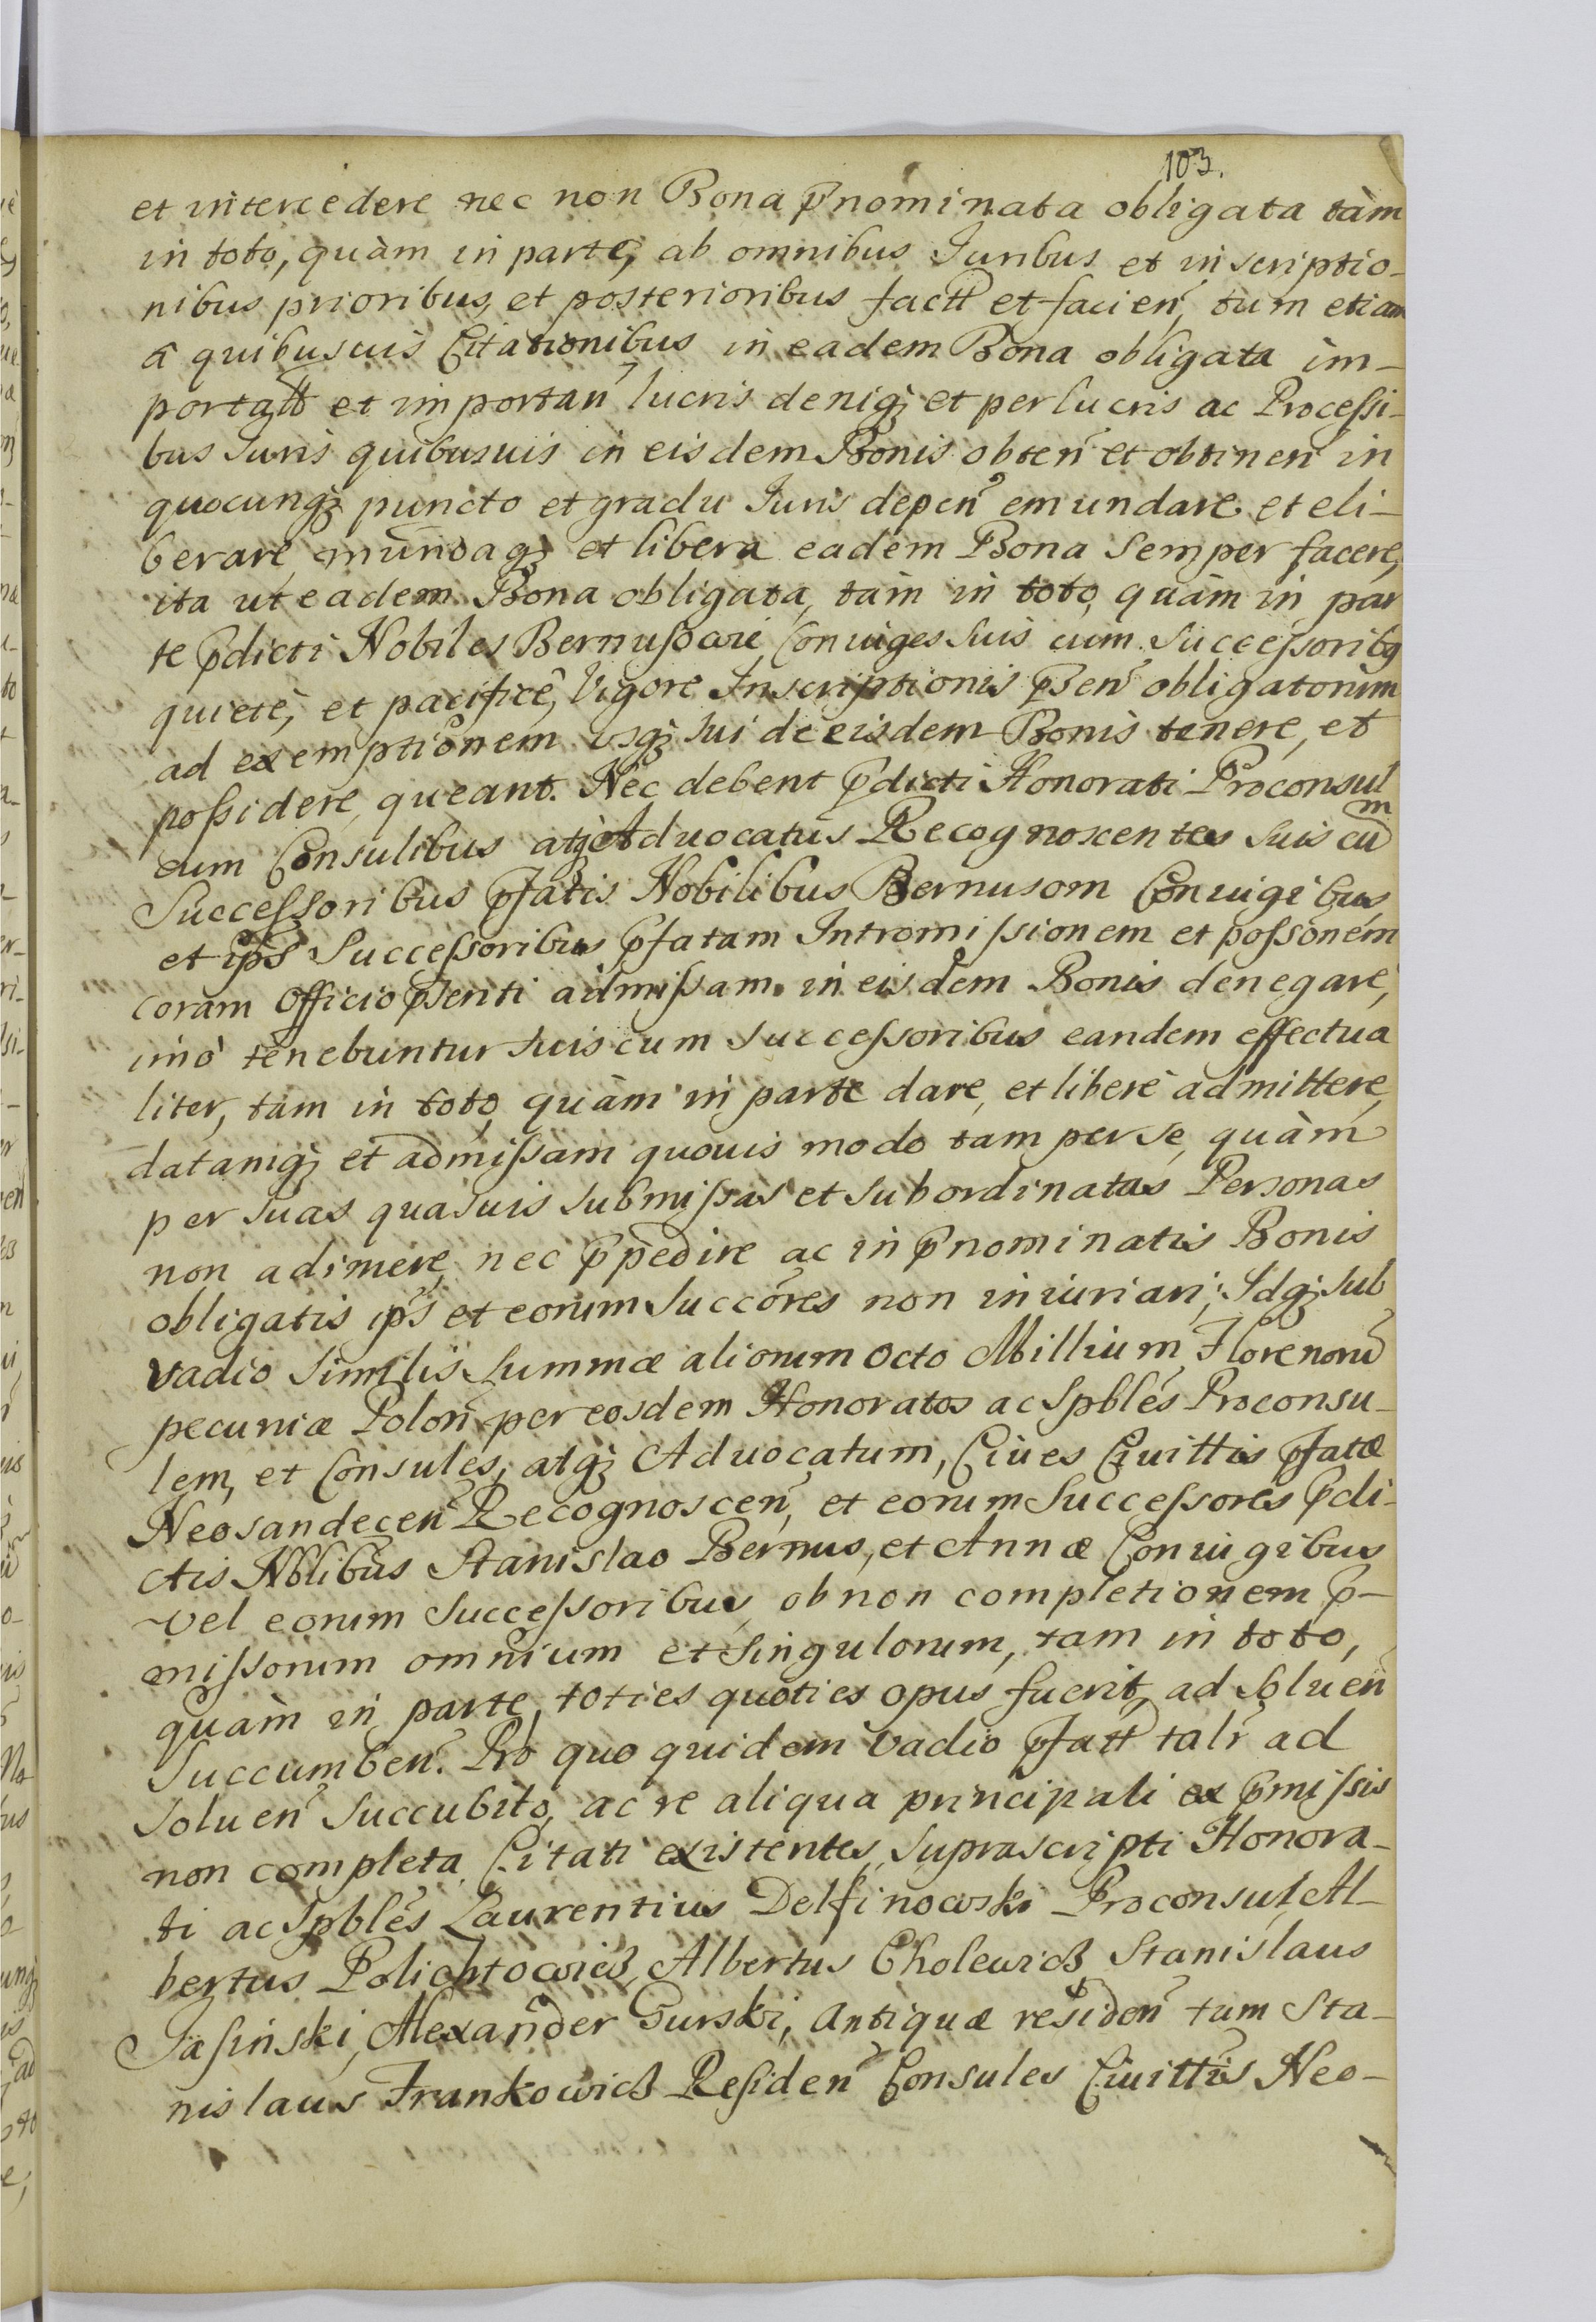 103.
et intercedere nec non Bona p̃nominata obligata tàm
in toto, quàm in parte, ab omnibus Juribus et inscriptio-
nibus prioribus, et posterioribus factt et facien̄, tum etiam
à quibusuis Citationibus in eadem Bona obligata im-
portatt et importan̄ lucris deniqꝫ et perlucris ac Processi-
bus Juris quibusuis in eisdem Bonis obten̄ et obtinen̄ in
quocunqꝫ puncto et gradu Juris depen̄ emundare et eli-
berare, mundaqꝫ et libera eadem Bona semper facere,
ita ut eadem Bona obligata, tàm in toto quàm in par
te p̃dicti Nobiles Bernusowie Coniuges suis cum Successoribꝫ
quietè, et pacificê, Vigore Inscriptionis p̃sen̄ obligatorium
ad exemptionem usqꝫ sui de eisdem Bonis tenere, et
possidere queant. Nec debent p̃dicti Honorati Proconsul
cum Consulibus atqꝫ Aduocatus Recognoscentes suis cum
Successoribus p̃fatis Nobilibus Bernusom Coniugibus
et ip̄s Successoribus p̃fatam Intromissionem et possōnem
coram Officio p̃senti admissam in eisdem Bonis denegare,
imò tenebuntur suis cum successoribus eandem effectua
liter, tam in toto quàm in parte dare, et liberè admittere,
datamqꝫ et admissam quouis modo tam per se, quàm
per suas quasuis submissas et subordinatas Personas
non adimere nec p̃pedire ac in p̃nominatis Bonis
obligatis ip̄s et eorum Succōres non iniuriari; Idqꝫ sub
vadio similis summæ aliorum octo Millium Florenorū
pecuniæ Polon̄ per eosdem Honoratos ac Spbles Proconsu-
lem, et Consules, atqꝫ Aduocatum, Ciues Ciuittis p̃fatæ
Neosandecen̄ Recognoscen̄, et eorum Successores p̃di-
ctis Nblibus Stanislao Bernus, et Annæ Coniugibus
vel eorum Successoribus, ob non completionem p̃-
missorum omnium et singulorum, tam in toto,
quàm in parte, toties quoties opus fuerit, ad soluen̄
Succumben̄. Pro quo quidem vadio p̃fatt talr̄ ad
soluen̄ succubito, ac re aliqua principali ex p̃missis
non completa Citati existentes suprascripti Honora-
ti ac Spbles Laurentius Delfinowski Proconsul, Al-
bertus Polichtowicz, Albertus Cholewicz Stanislaus
Jasinski, Alexander Gurski, Antiquæ residen̄ tum Sta-
nislaus Frankowicz Residen̄ Consules Ciuittis Neo-